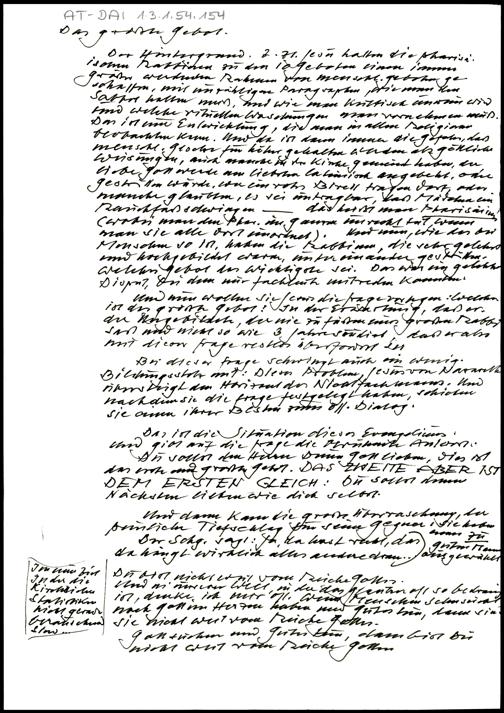 AT-DAI 13.1.54.154
Das größte Gebot.
Der Hintergrund. Z. Zt. Jesu hatten die pharisä-
ischen Rabbinen zu den 10 Geboten einen immer
größer werdenden Rahmen von menschl. geboten ge
schaffen, mit unzähligen Paragraphen, wie man den
Sabbat halten muß, und wie man kultisch unrein wird
und welche rituellen Waschungen man vornehmen muß.
Das ist eine Entwicklung, die man in allen Religionen
beobachten kann. Und da ist dann immer die Gefahr, daß
menschl. Gesetze für höher gehalten werden als göttliche
Weisungen, auch manche in der Kirche gemeint haben, der
liebe Gott werde am liebsten lateinisch angebetet, oder
gestritten wurde, wer ein rotes Birett tragen darf, oder
manche glaubten, es sei untragbar, daß Mädchen ein
Rauchfaß schwingen — das heißt man Pharisäismus
(wobei man den Phar. im ganzen unrecht tut wenn
man sie alle dort einordnet). Und nun, wie das bei
Menschen so ist, haben die Rabbinen, die sehr gelehrt
und hochgebildet waren, untereinander gestritten,
welches Gebot das wichtigste sei. Das war ein gelehrter
Disput, bei dem nur Fachleute mitreden konnten.
Und nun wollen sie Jesus die Frage vorlegen: Welches
ist das größte Gebot? In der Erwartung, daß er
der Ungebildete, der nie zu Füßen eines großen Rabbi
saß und nicht so wie 3 Jahre studiert, daß er also
mit dieser Frage restlos überfordert sei
Bei dieser Frage schwingt auch ein wenig
Bildungsstolz mit: Dieses Problem, Jesus von Nazareth
übersteigt den Horizont des Nichtfachmanns. Und
nachdem sie die Frage festgelegt haben, schicken
sie einen ihrer Besten zum öff. Dialog.
Das ist die Situation dieses Evangeliums.
Und gibt auf die Frage die berühmte Antwort:
Du sollst den Herrn Deinen Gott lieben, dies ist
das erste und größte Gebot. DAS ZWEITE ABER IST
DEM ERSTEN GLEICH: Du sollst deinen
Nächsten lieben wie dich selbst.
Und dann kam die große Überraschung, der
peinliche Tiefschlag für seine Gegner: sie haben
einen zu
guten Mann
ausgewählt
Der Schg. sagt: Ja, da hast recht, das
da hängt wirklich alles andere dran.
Du bist nicht weit vom Reiche Gottes.
Und in unserer Welt, in der das Glauben oft so bedrängt
ist, denke ich mir oft: Wenn Menschen Sehnsucht
nach Gott im Herzen haben und Gutes tun, dann sind
sie nicht weit vom Reiche Gottes.
Gott suchen und Gutes tun, dann bist Du
nicht weit vom Reiche Gottes
In einer Zeit
In der die
Kirchlichen
Statistiken
nicht gerade
berauschend
sind...